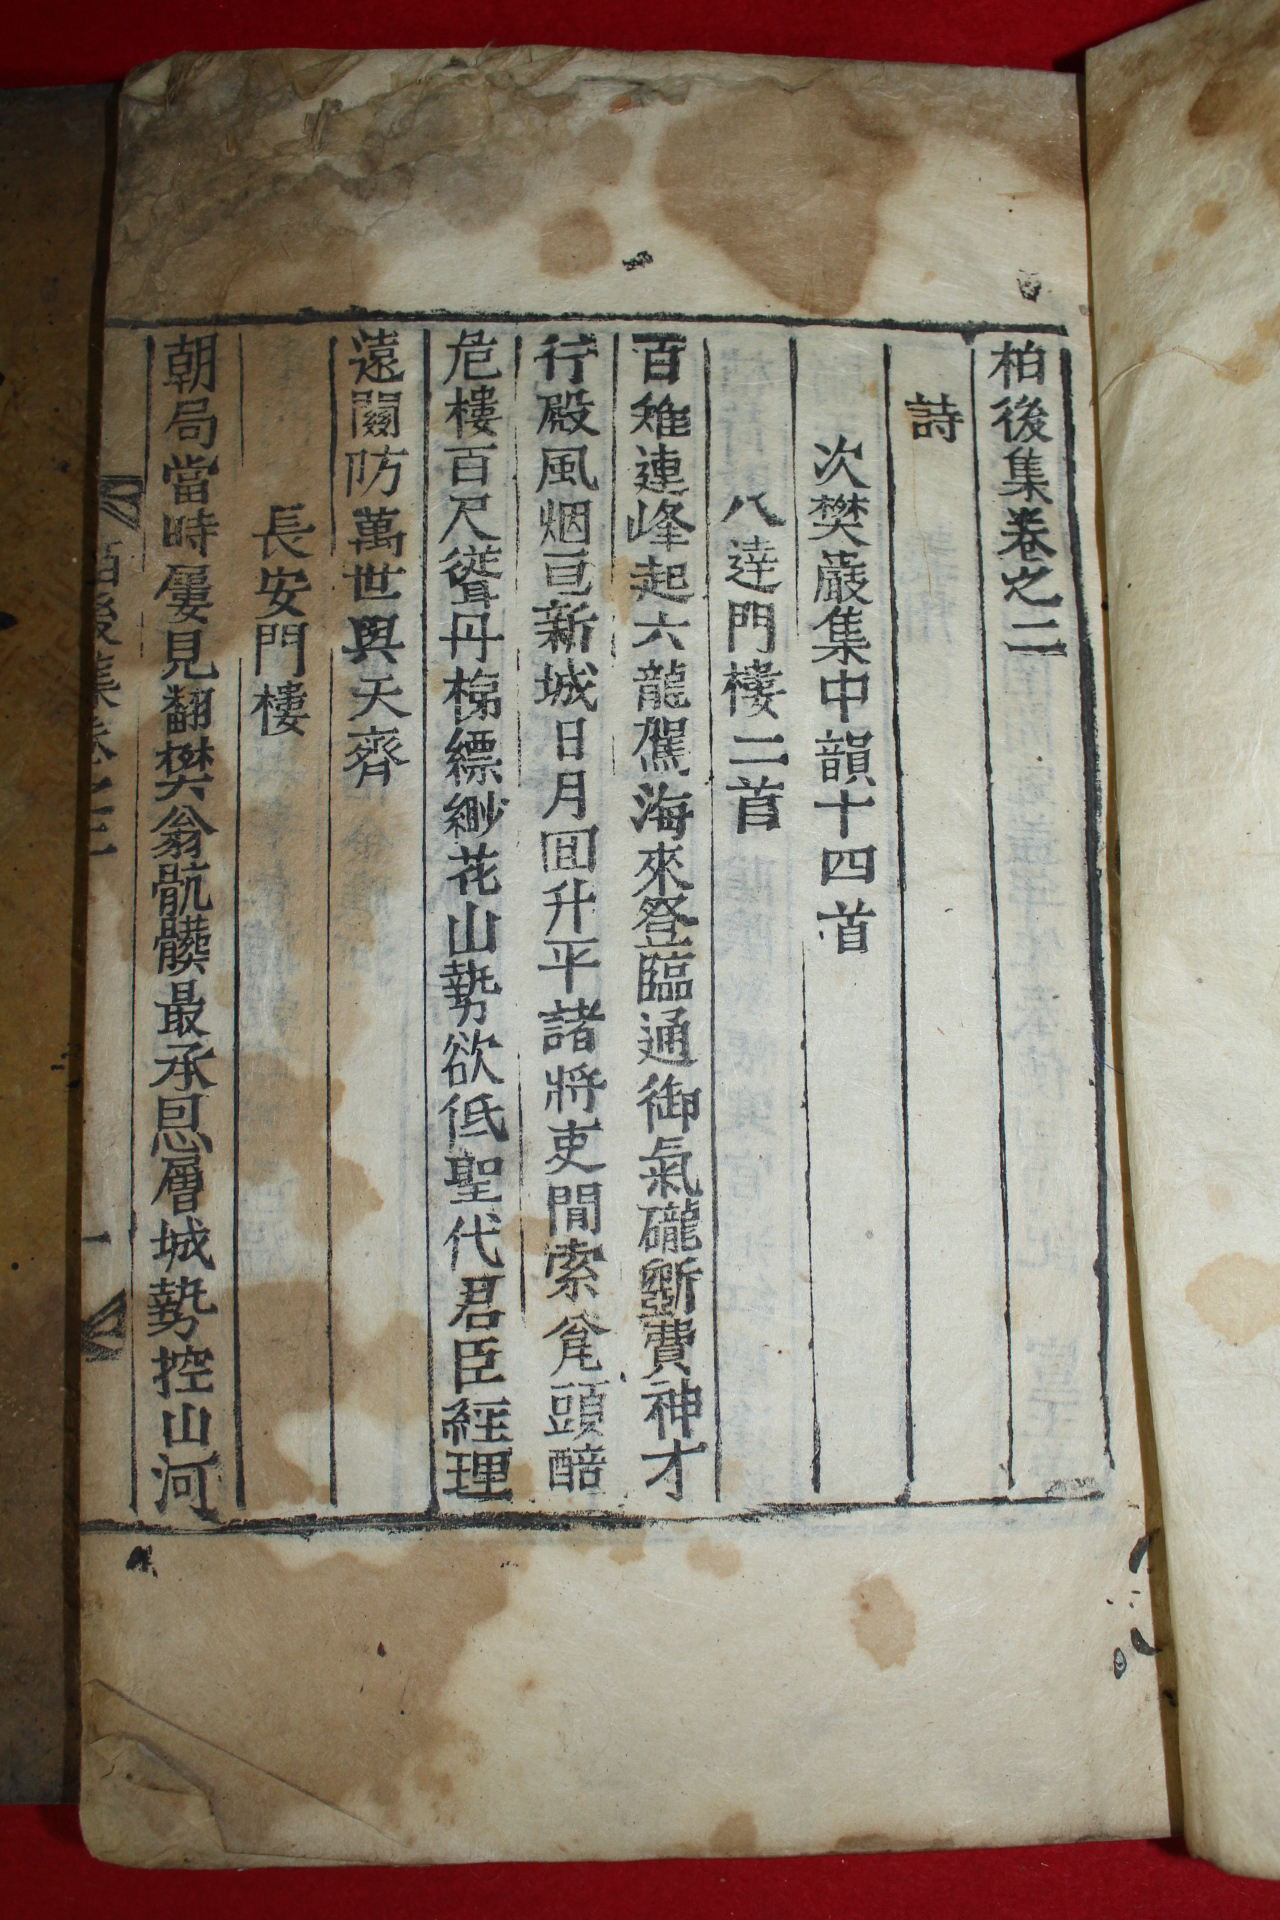 柏後集卷之二
詩
次樊巖集中韻十四首
八達門樓二首
百雉連峰起六龍駕海來登臨通御氣礲斲費神才
行殿風烟亘新城日月囬升平諸將吏閒索瓮頭醅
危樓百尺聳丹梯縹緲花山勢欲低聖代君臣經理
遠關防萬世與天齊
長安門樓
朝局當時屢見翻樊翁骯髒最承恩層城勢控山河
柏後集卷之二 一